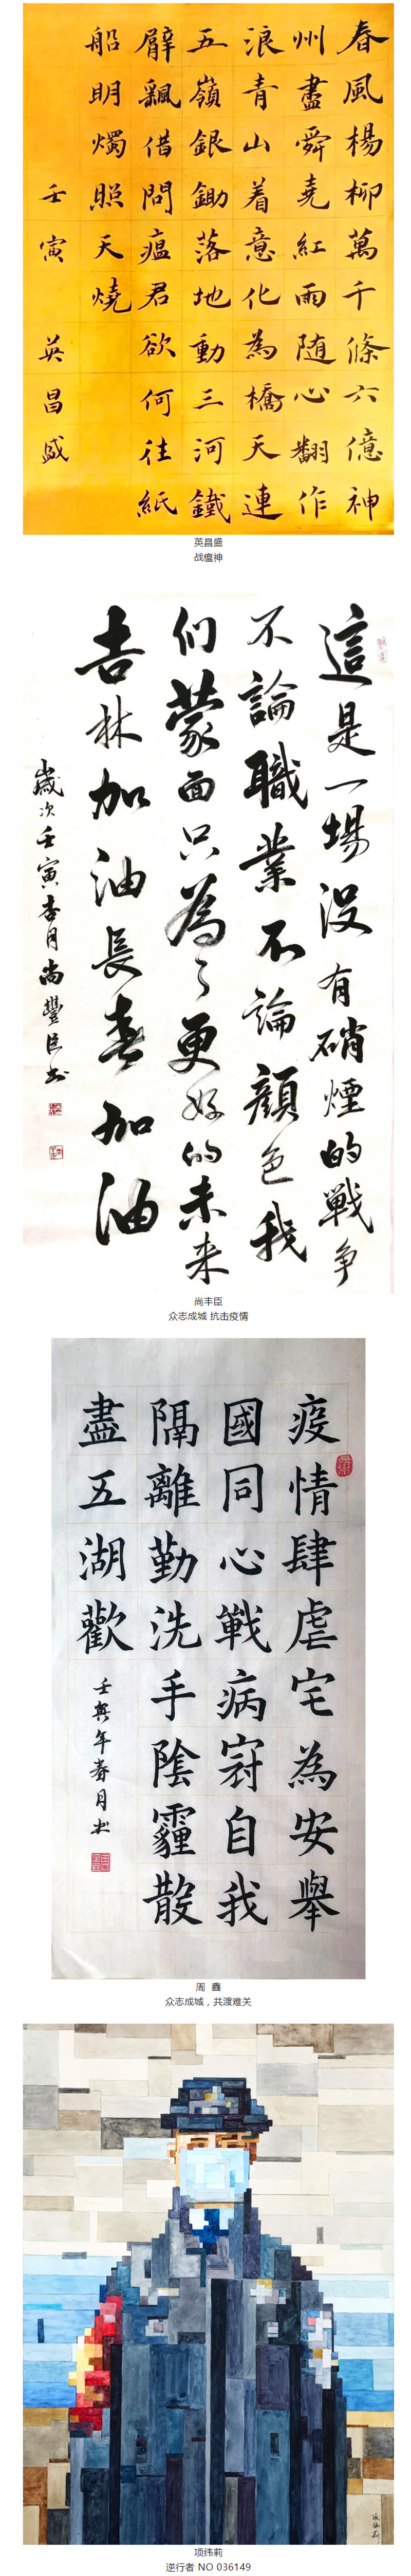 春風楊柳萬千條六億神
州盡舜堯紅雨随心翻作
浪青山着意化為橋天連
五嶺銀鋤落地動三河鐵
臂飄借問瘟君欲何往紙
船明燭照天燒
壬寅 英昌盛
英昌盛
战瘟神
這是一場没有硝煙的戰争
不論職業不論顔色我
们蒙面只為了更好的未来
吉林加油長春加油
歲次壬寅杏月尚豐臣书
尚丰臣
众志成城 抗击疫情
疫情肆虐宅為安舉
國同心戰病冦自我
隔離勤洗手陰霾散
盡五湖歡
壬寅年春月书
周 鑫
众志成城，共渡难关
项纬莉
项纬莉
逆行者 NO 036149